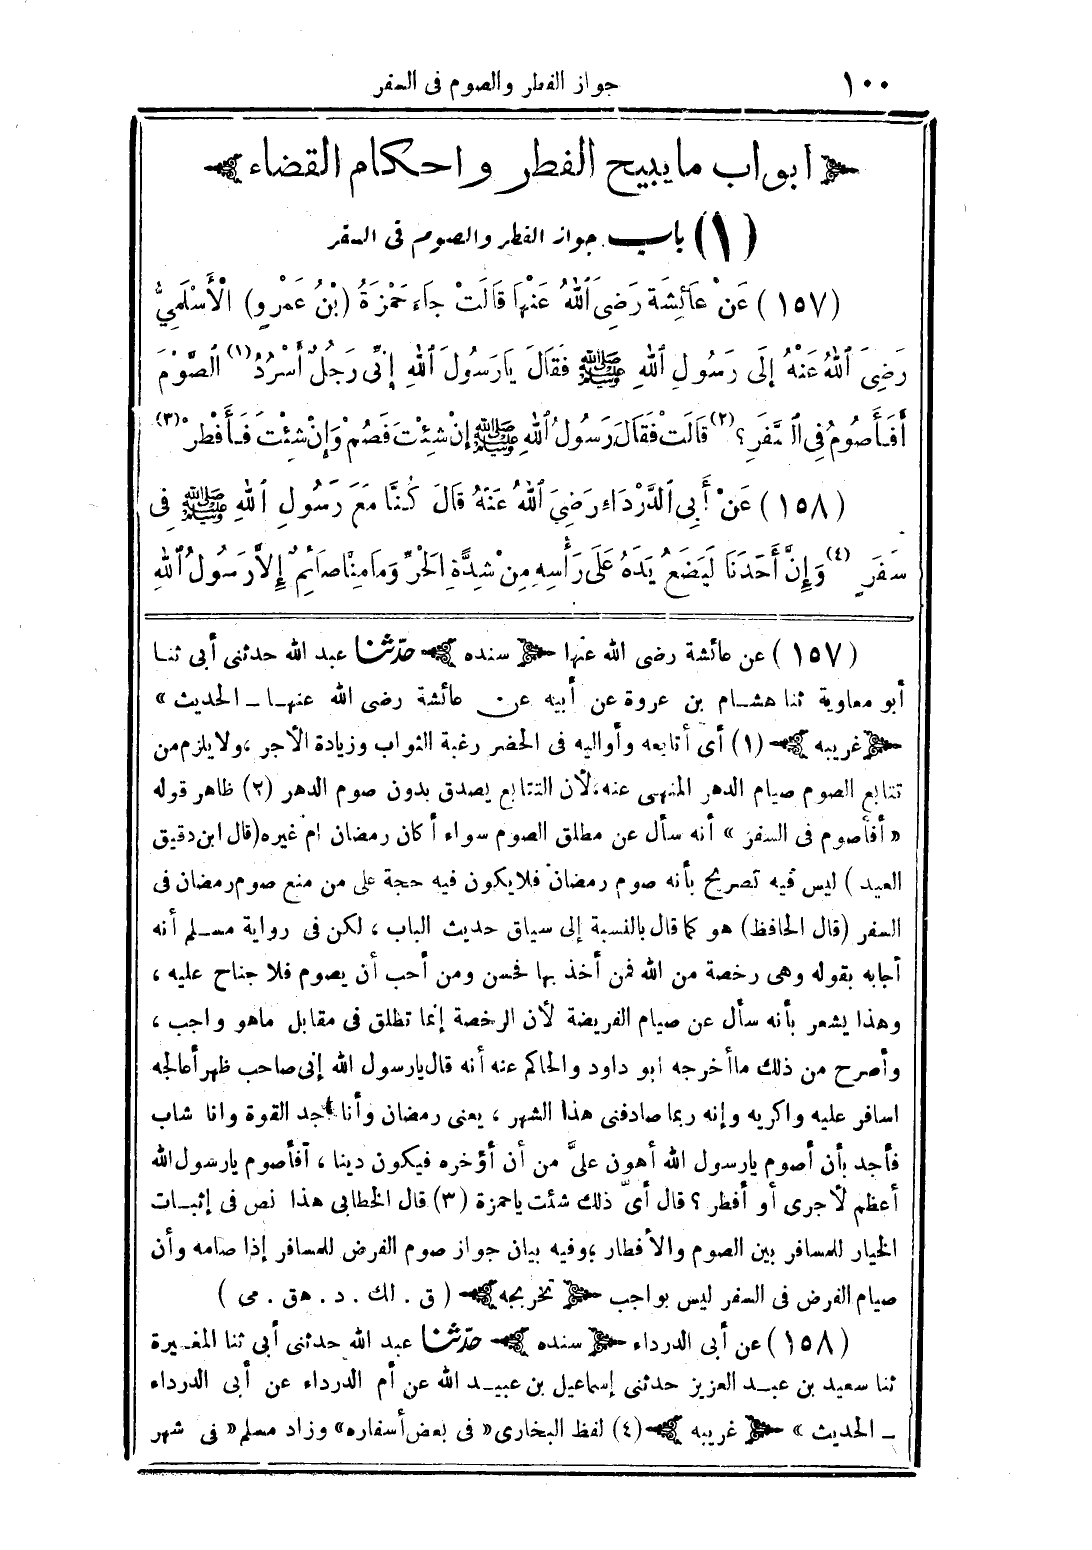 ١٠٠ جواز الفطر والصوم فى السفر
﴿ ابواب ما يبيح الفطر واحكام القضاء ﴾
(١) باب جواز الفطر والصوم فى السفر
(١٥٧) عَنْ عَائِشَةَ رَضِىَ اللهُ عَنْهَا قَالَتْ جَاءَ حَمْزَةُ (بْنُ عَمْرٍو) الْأَسْلَمِىُّ
رَضِىَ اللهُ عَنْهُ إِلَى رَسُولِ اللهِ ﷺ فَقَالَ يَارَسُولَ اللهِ إِنِّى رَجُلٌ أَسْرُدُ (١) الصَّوْمَ
أَفَأَصُومُ فِى السَّفَرِ؟ (٢) قَالَتْ فَقَالَ رَسُولُ اللهِ ﷺ إِنْ شِئْتَ فَصُمْ وَإِنْ شِئْتَ فَأَفْطِرْ (٣)
(١٥٨) عَنْ أَبِى الدَّرْدَاءِ رَضِىَ اللهُ عَنْهُ قَالَ كُنَّا مَعَ رَسُولِ اللهِ ﷺ فِى
سَفَرٍ (٤) وَإِنَّ أَحَدَنَا لَيَضَعُ يَدَهُ عَلَى رَأْسِهِ مِنْ شِدَّةِ الْحَرِّ وَمَا مِنَّا صَائِمٌ إِلَّا رَسُولُ اللهِ
(١٥٧) عن عائشة رضى الله عنها ﴿ سنده ﴾ حدّثنا عبد الله حدثنى أبى ثنا
أبو معاوية ثنا هشام بن عروة عن أبيه عن عائشة رضى الله عنها ــ الحديث »
﴿ غريبه ﴾ (١) أى أتابعه وأواليه فى الحضر رغبة الثواب وزيادة الأجر ، ولا يلزم من
تتابع الصوم صيام الدهر المنهى عنه، لأن التتابع يصدق بدون صوم الدهر (٢) ظاهر قوله
« أفأصوم فى السفر » أنه سأل عن مطلق الصوم سواء أكان رمضان ام غيره (قال ابن دقيق
العيد) ليس فيه تصريح بأنه صوم رمضان فلا يكون فيه حجة على من منع صوم رمضان فى
السفر (قال الحافظ) هو كما قال بالنسبة إلى سياق حديث الباب ، لكن فى رواية مسلم أنه
أجابه بقوله وهى رخصة من الله فمن أخذ بها فحسن ومن أحب أن يصوم فلا جناح عليه ،
وهذا يشعر بأنه سأل عن صيام الفريضة لأن الرخصة إنما تطلق فى مقابل ماهو واجب ،
وأصرح من ذلك ماأخرجه ابو داود والحاكم عنه أنه قال يارسول الله إنى صاحب ظهر أعالجه
اسافر عليه واكريه وإنه ربما صادفنى هذا الشهر ، يعنى رمضان وأنا اجد القوة وانا شاب
فأجد بأن أصوم يارسول الله أهون علىَّ من أن أؤخره فيكون دينا ، أفأصوم يارسول الله
أعظم لأجرى أو أفطر ؟ قال أىّ ذلك شئت ياحمزة (٣) قال الخطابى هذا نص فى إثبات
الخيار للمسافر بين الصوم والأفطار ؛ وفيه بيان جواز صوم الفرض للمسافر إذا صامه وأن
صيام الفرض فى السفر ليس بواجب ﴿ تخريجه ﴾ ( ق . لك . د . هق . مى )
(١٥٨) عن أبى الدرداء ﴿ سنده ﴾ حدّثنا عبد الله حدثنى أبى ثنا المغيرة
ثنا سعيد بن عبد العزيز حدثنى إسماعيل بن عبيد الله عن أم الدرداء عن أبى الدرداء
ــ الحديث » ﴿ غريبه ﴾ (٤) لفظ البخارى « فى بعض أسفاره » وزاد مسلم « فى شهر